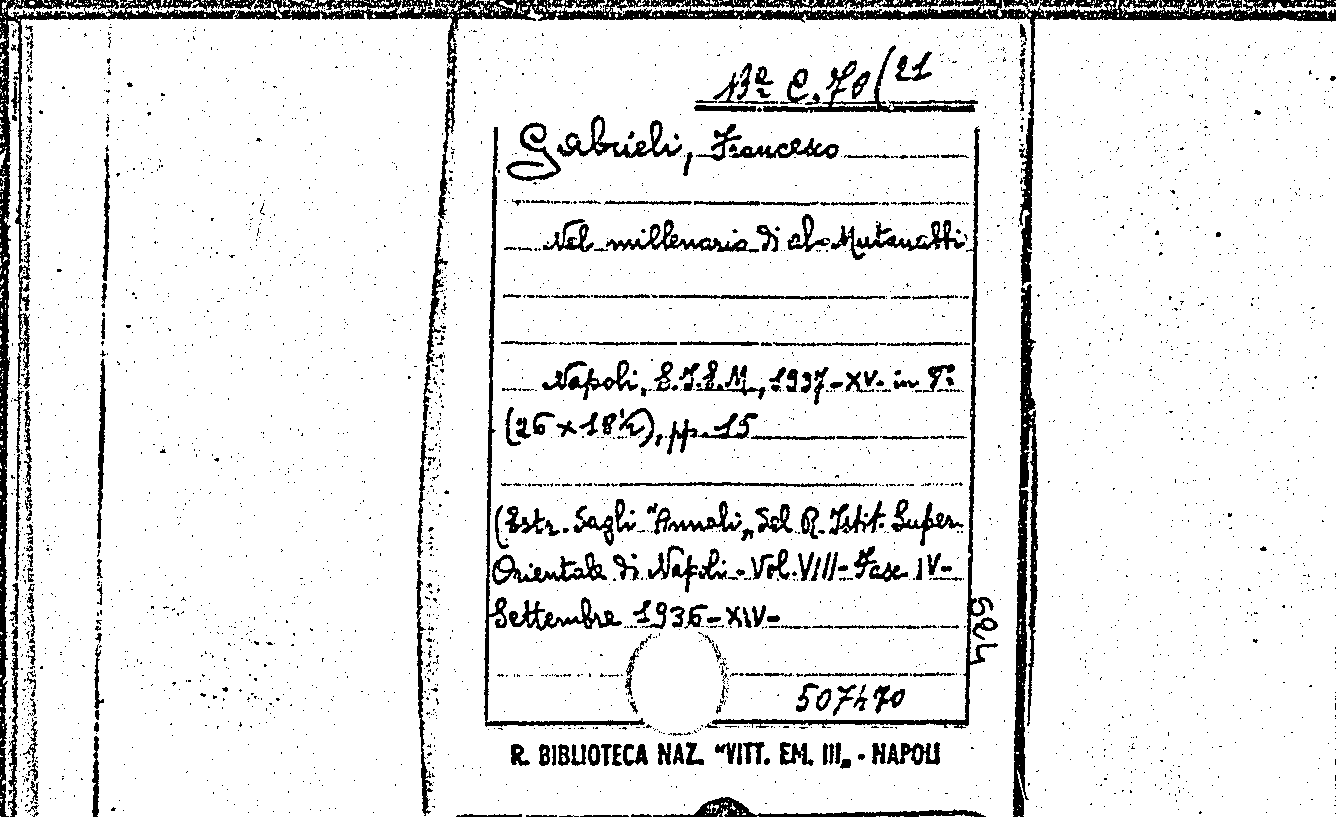 Bª C.70(21
Gabrieli, Francesco
Nel millenario di al-Mutanabbi
Napoli, S.I.E.M., 1937-XV- in 8°
(26 x 18½), pp. 15
(Estr. dagli "Annali„ del R. Istit. Super.
Orientale di Napoli - Vol. VIII - Fasc. IV-
Settembre 1936-XIV-
507470
R. BIBLIOTECA NAZ. "VITT. EM. III„ - NAPOLI